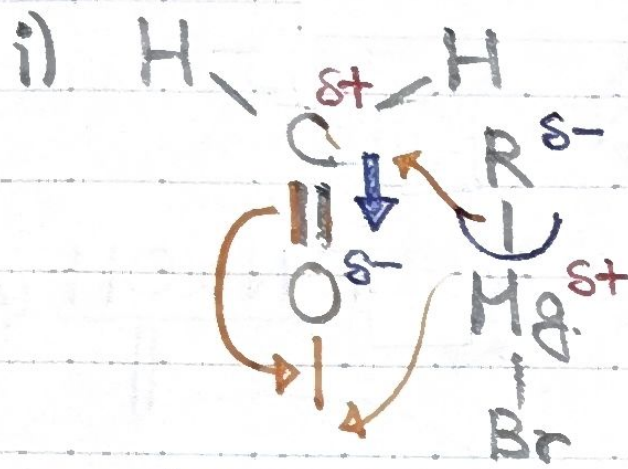 i) H H
δ+
C R δ-
O δ- Mg δ+
Br